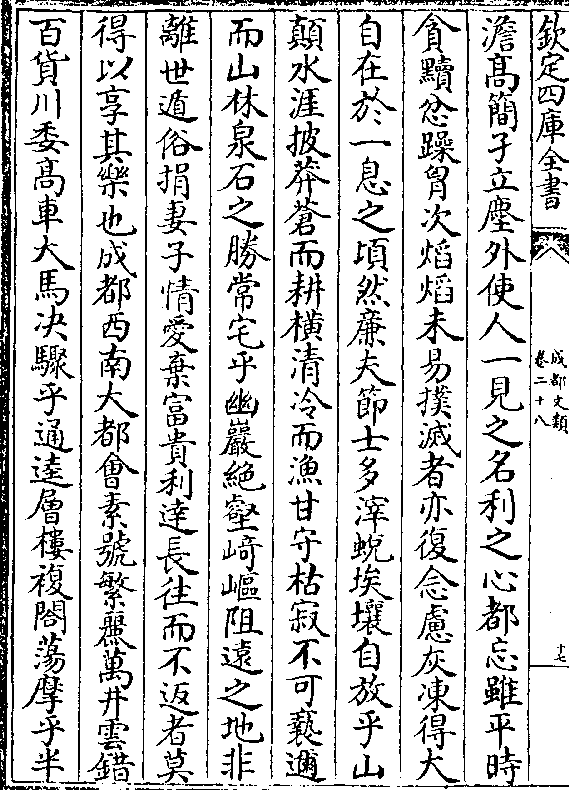 欽定四庫全書
成都文類
卷二十八
十七
澹高簡孑立塵外使人一見之名利之心都忘雖平時
貪黷忿躁胷次熖熖未易撲滅者亦復念慮灰凍得大
自在於一息之頃然亷夫節士多滓蛻埃壤自放乎山
顛水涯披莽蒼而耕横清冷而漁甘守枯寂不可褻邇
而山林泉石之勝常宅乎幽巖絶壑﨑嶇阻遠之地非
離世遁俗捐妻子情愛棄富貴利達長往而不返者莫
得以享其樂也成都西南大都會素號繁麗萬井雲錯
百貨川委高車大馬决驟乎通逵層樓複閣蕩摩乎半